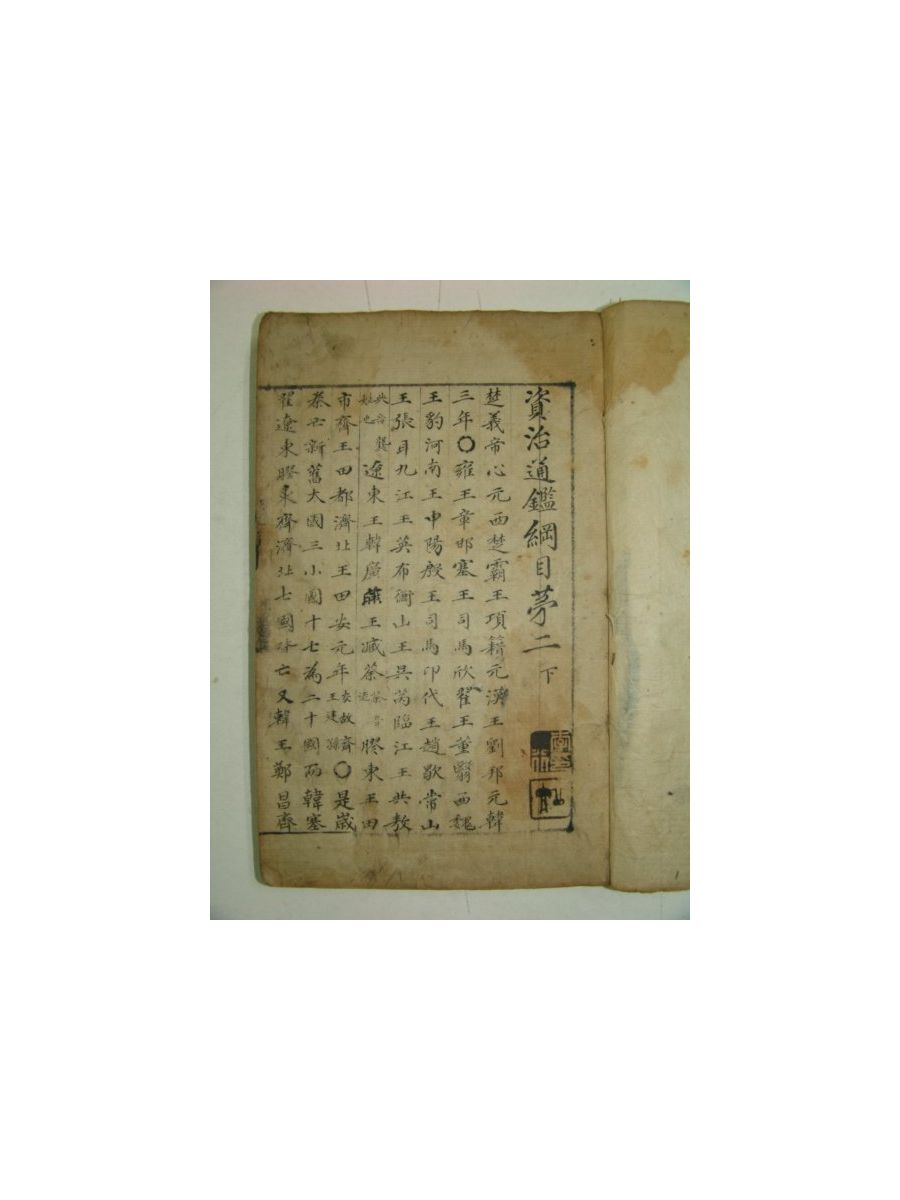 資治通鑑綱目苐二下
楚義帝心元西楚霸王項籍元漢王劉邦元韓
三年〇雍王章邯塞王司馬欣翟王董翳西魏
王豹河南王申陽殷王司馬卬代王趙歇常山
王張耳九江王英布衡山王吳芮臨江王共敖
共音龔 遼東王韓廣燕王臧荼 膠東王田
市齊王田都濟北王田安元年 安故齊王建孫 〇是歲
秦亡新舊大國三小國十七為二十國而韓塞
翟遼東膠東齊濟北七國皆亡又韓王鄭昌齊